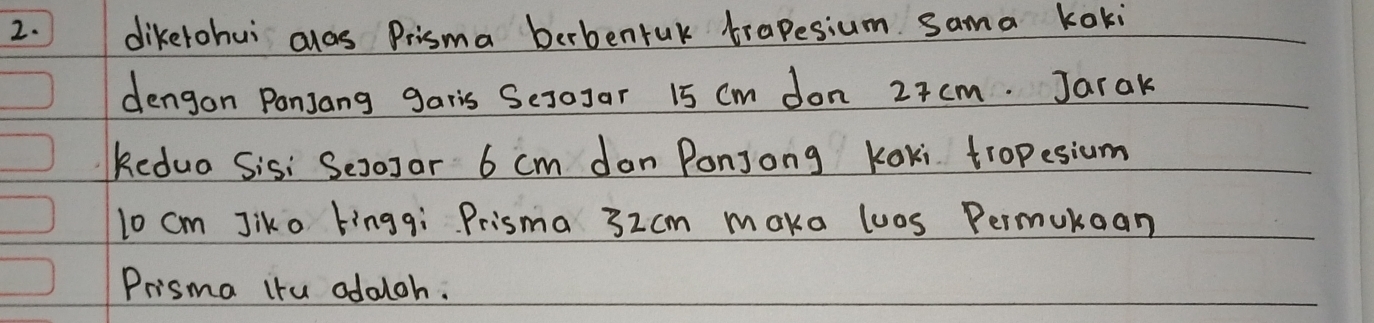 2. diketahui alas Prisma berbentuk trapesium sama kaki
dengan Panjang garis Sejajar 15 cm dan 27 cm. Jarak
kedua Sisi Sejajar 6 cm dan Panjang kaki trapesium
10 cm Jika tinggi Prisma 32 cm maka luas Permukaan
Prisma itu adalah.